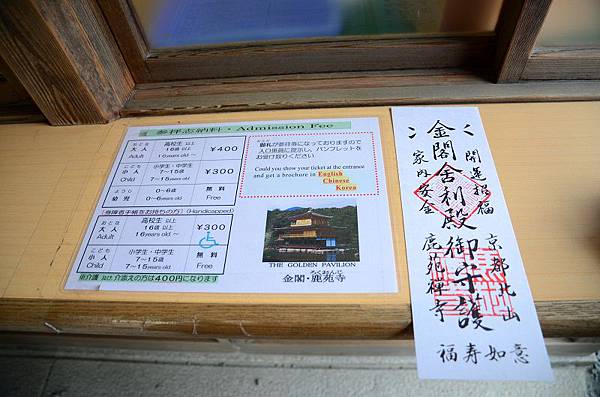 参拝志納料・Admission Fee
おとな 高校生 以上
大人 16歳 以上
Adult 16years old ~
¥400
こども 小学生・中学生
小人 7~15歳
Child 7~15years old
¥300
ようじ 0~6歳
幼児 0~6years old
無料
Free
「障害者手帳をお持ちの方」(Handicapped)
おとな 高校生 以上
大人 16歳 以上
Adult 16years old ~
¥300
こども 小学生・中学生
小人 7~15歳
Child 7~15years old
無料
Free
介護 及び 介添えの方は400円になります
御札が参拝券になっておりますので
入口係員に提示し、パンフレットを
お受け取りください
Could you show your ticket at the entrance
and get a brochure in English
Chinese
Korea
THE GOLDEN PAVILION
ろくおんじ
金閣・鹿苑寺
開運招福
金閣舎利殿御守護
家内安全
京都北山
鹿苑禅寺
福寿如意